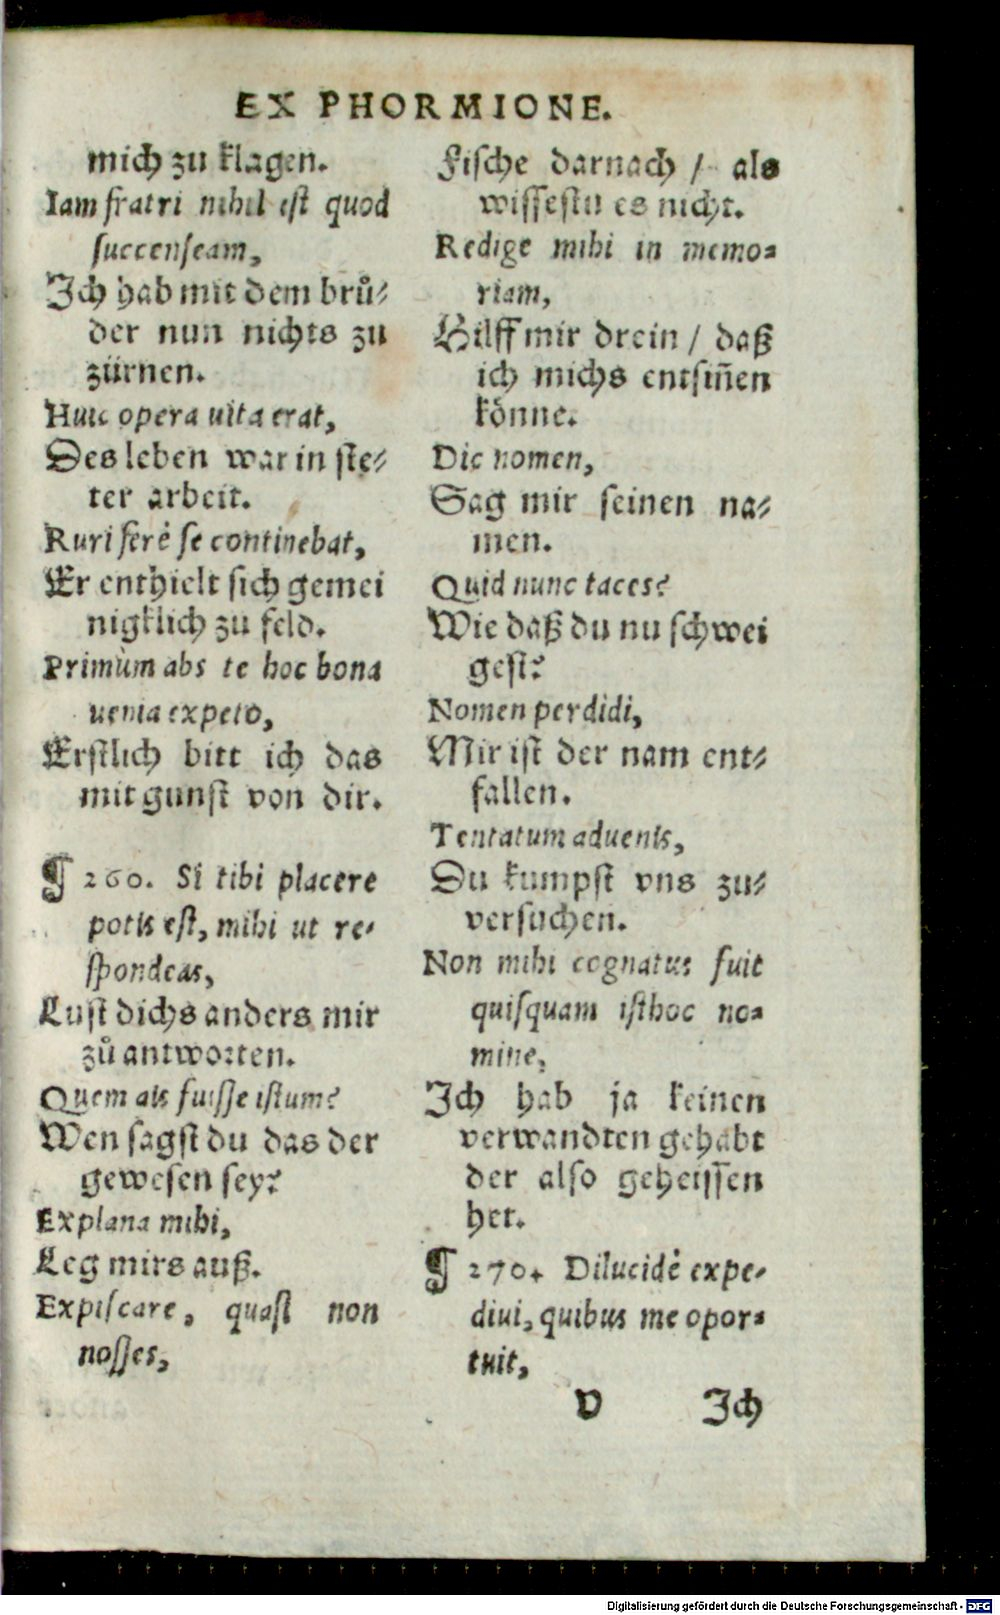 EX PHORMIONE.
mich zu klagen.
Iam fratri nihil est quod
succenseam,
Ich hab mit dem brů⸗
der nun nichts zu
zürnen.
Huic opera uita erat,
Des leben war in ste⸗
ter arbeit.
Ruri ferè se continebat,
Er enthielt sich gemei
nigklich zu feld.
Primùm abs te hoc bona
uenia expeto,
Erstlich bitt ich das
mit gunst von dir.
¶ 260. Si tibi placere
potis est, mihi ut re-
spondeas,
Lust dichs anders mir
zů antworten.
Quem ais fuisse istum?
Wen sagst du das der
gewesen sey?
Explana mihi,
Leg mirs auß.
Expiscare, quasi non
nosses,
Fische darnach / als
wissestu es nicht.
Redige mihi in memo⸗
riam,
Hilff mir drein / daß
ich michs entsiñen
könne.
Dic nomen,
Sag mir seinen na⸗
men.
Quid nunc taces?
Wie daß du nu schwei
gest?
Nomen perdidi,
Mir ist der nam ent⸗
fallen.
Tentatum aduenis,
Du kumpst vns zu⸗
versuchen.
Non mihi cognatus fuit
quisquam isthoc no⸗
mine,
Ich hab ja keinen
verwandten gehabt
der also geheissen
het.
¶ 270. Dilucidè expe-
diui, quibus me opor⸗
tuit,
V Ich
Digitalisierung gefördert durch die Deutsche Forschungsgemeinschaft - DFG